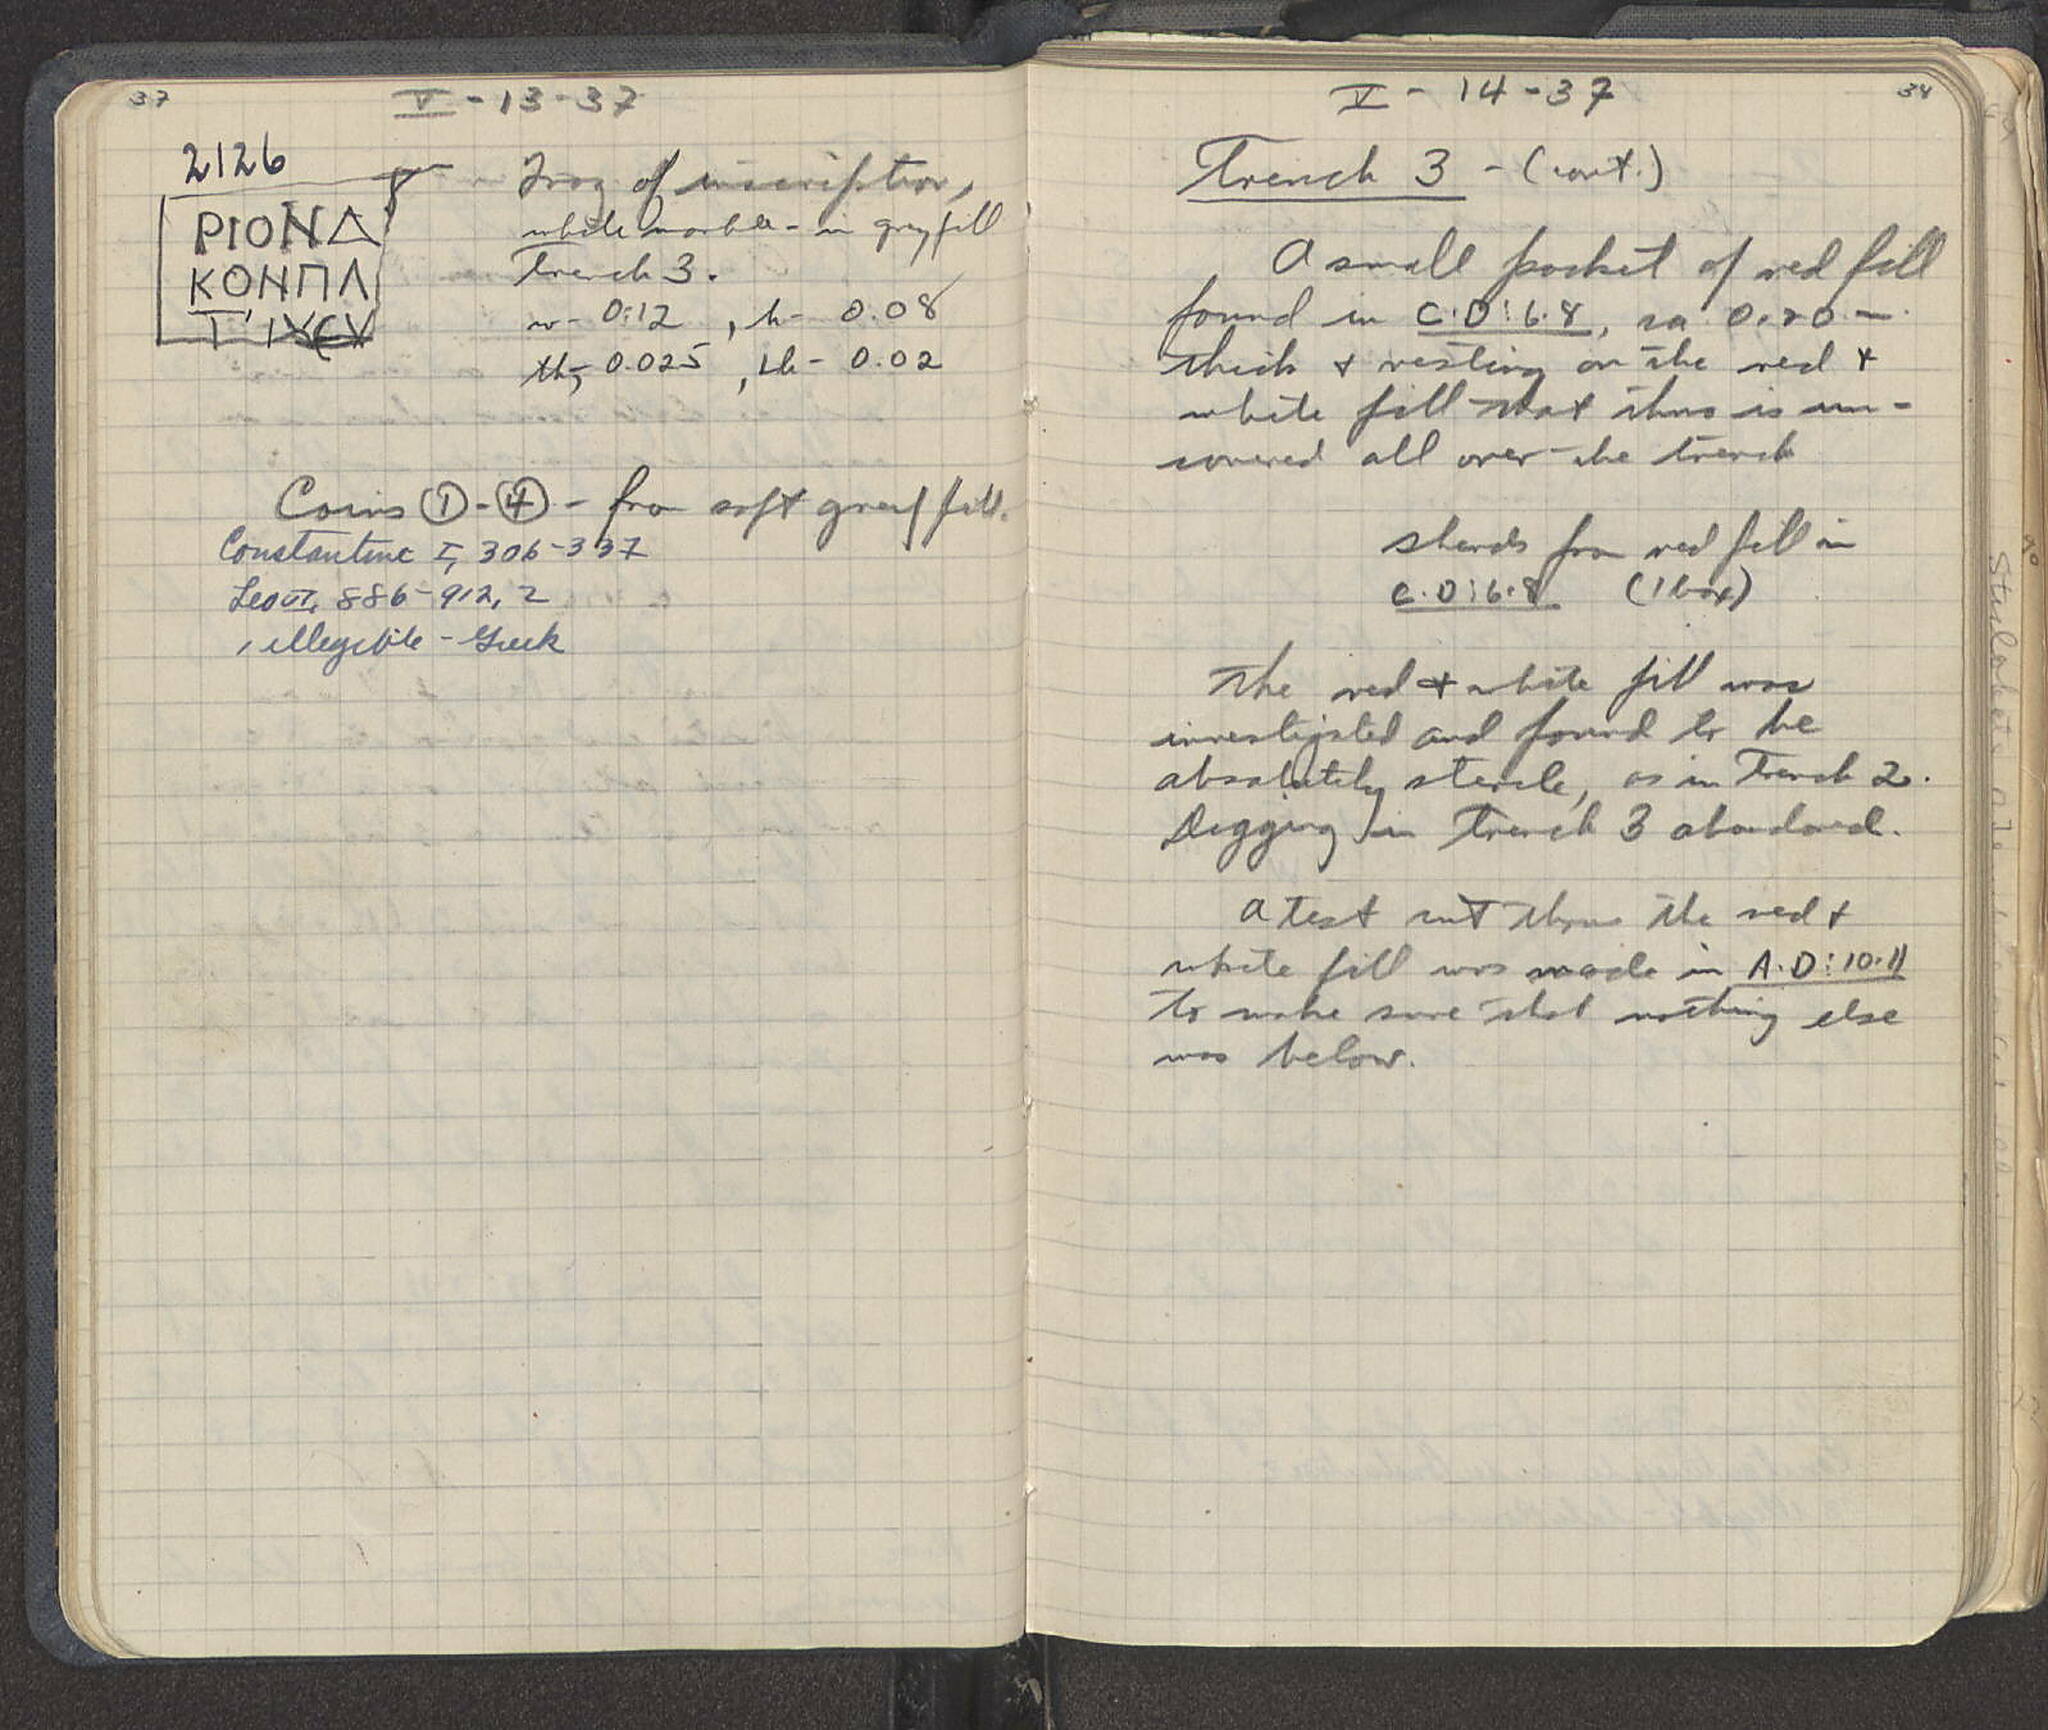 37
V - 13 - 37
2126
ΡΙΟΝΔ
ΚΟΗΠΛ
Frag of inscription,
white marble - in grey fill
Trench 3.
w - 0.12 , h - 0.08
th, 0.025 , Lh - 0.02
Coins ① - ④ - from soft grey fill.
Constantine I, 306-337
Leo VI, 886-912, 2
1 illegible - Greek
V - 14 - 37
38
Trench 3 - (cont.)
A small pocket of red fill
found in C.D:6.8, ca 0.20 m.
thick + resting on the red +
white fill that thus is un-
covered all over the trench
sherds from red fill in
C.D:6.8 (1 box)
The red + white fill was
investigated and found to be
absolutely sterile, as in Trench 2.
Digging in Trench 3 abandoned.
A test cut thru the red +
white fill was made in A.D:10.11
to make sure that nothing else
was below.